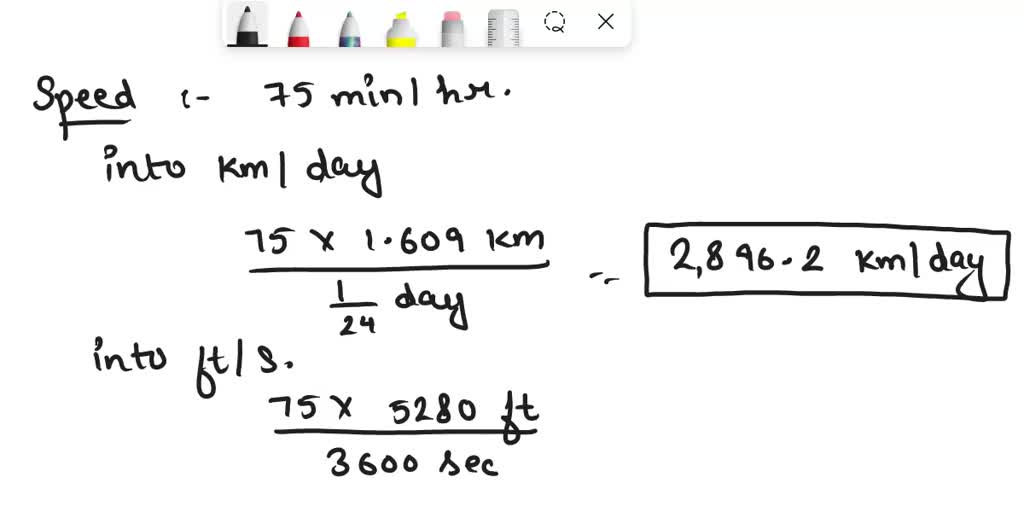 Speed :- 75 min/hr.
into km/day
75 x 1.609 km
1/24 day
= 2,896.2 km/day
into ft/s.
75 x 5280 ft
3600 sec